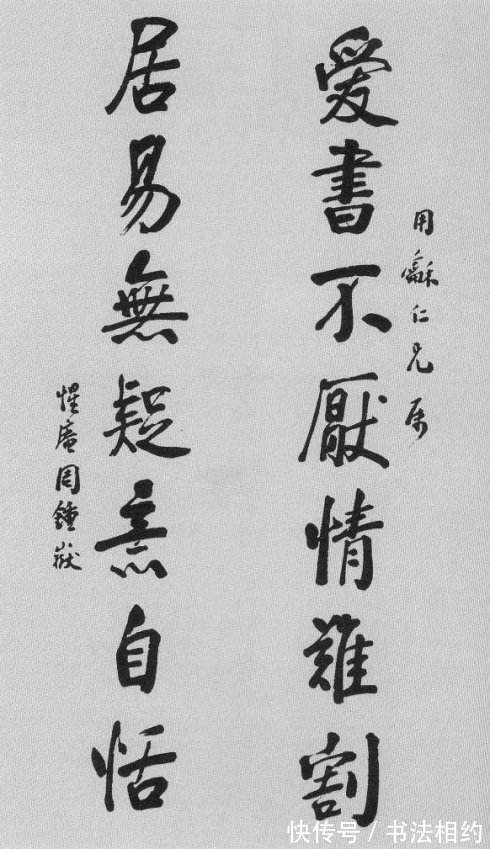 用龢仁兄属
愛書不厭情難割
居易無疑意自恬
惺庵周鍾嶽
快传号 / 书法相约